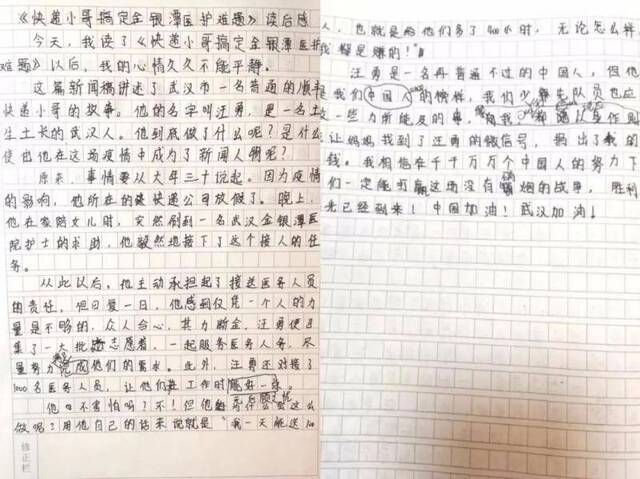 《快递小哥搞定金银潭医护难题》读后感
今天，我读了《快递小哥搞定金银潭医护
难题》以后，我的心情久久不能平静。
这篇新闻稿讲述了武汉市一名普通的顺丰
快递小哥的故事。他的名字叫汪勇，是一名土
生土长的武汉人。他到底做了什么呢？是什么
使他在这场疫情中成为了新闻人物呢？
原来，事情要从大年三十说起。因为疫情
的影响，他所在的快递公司放假了。晚上，
他在家陪女儿时，突然刷到一名武汉金银潭医
院护士的求助，他毅然地接下了这个接人的任
务。
从此以后，他主动承担起了接送医务人员
的责任，但日复一日，他感到仅凭一个人的力
量是不够的，众人合心，其力断金，汪勇便召
集了一大批志愿者，一起服务医务人务，尽
量努力完成他们的需求。此外，汪勇还对接了
1000名医务人员，让他们工作时能好一点。
他不害怕吗？不！但他为什么要这么
做呢？用他自己的话来说就是“我一天能送100
人，也就是为他们多了400小时，无论怎么样
我都是赚的！”
汪勇是一名再普通不过的中国人，但他
是我们中国人的榜样，我们少先队员也应
一些力所能及的事。
让妈妈找到了汪勇的微信号，捐出了我的
钱。我相信在千千万万个中国人的努力下
们一定能打赢这场没有硝烟的战争，胜利
光已经到来！中国加油！武汉加油！
修正栏